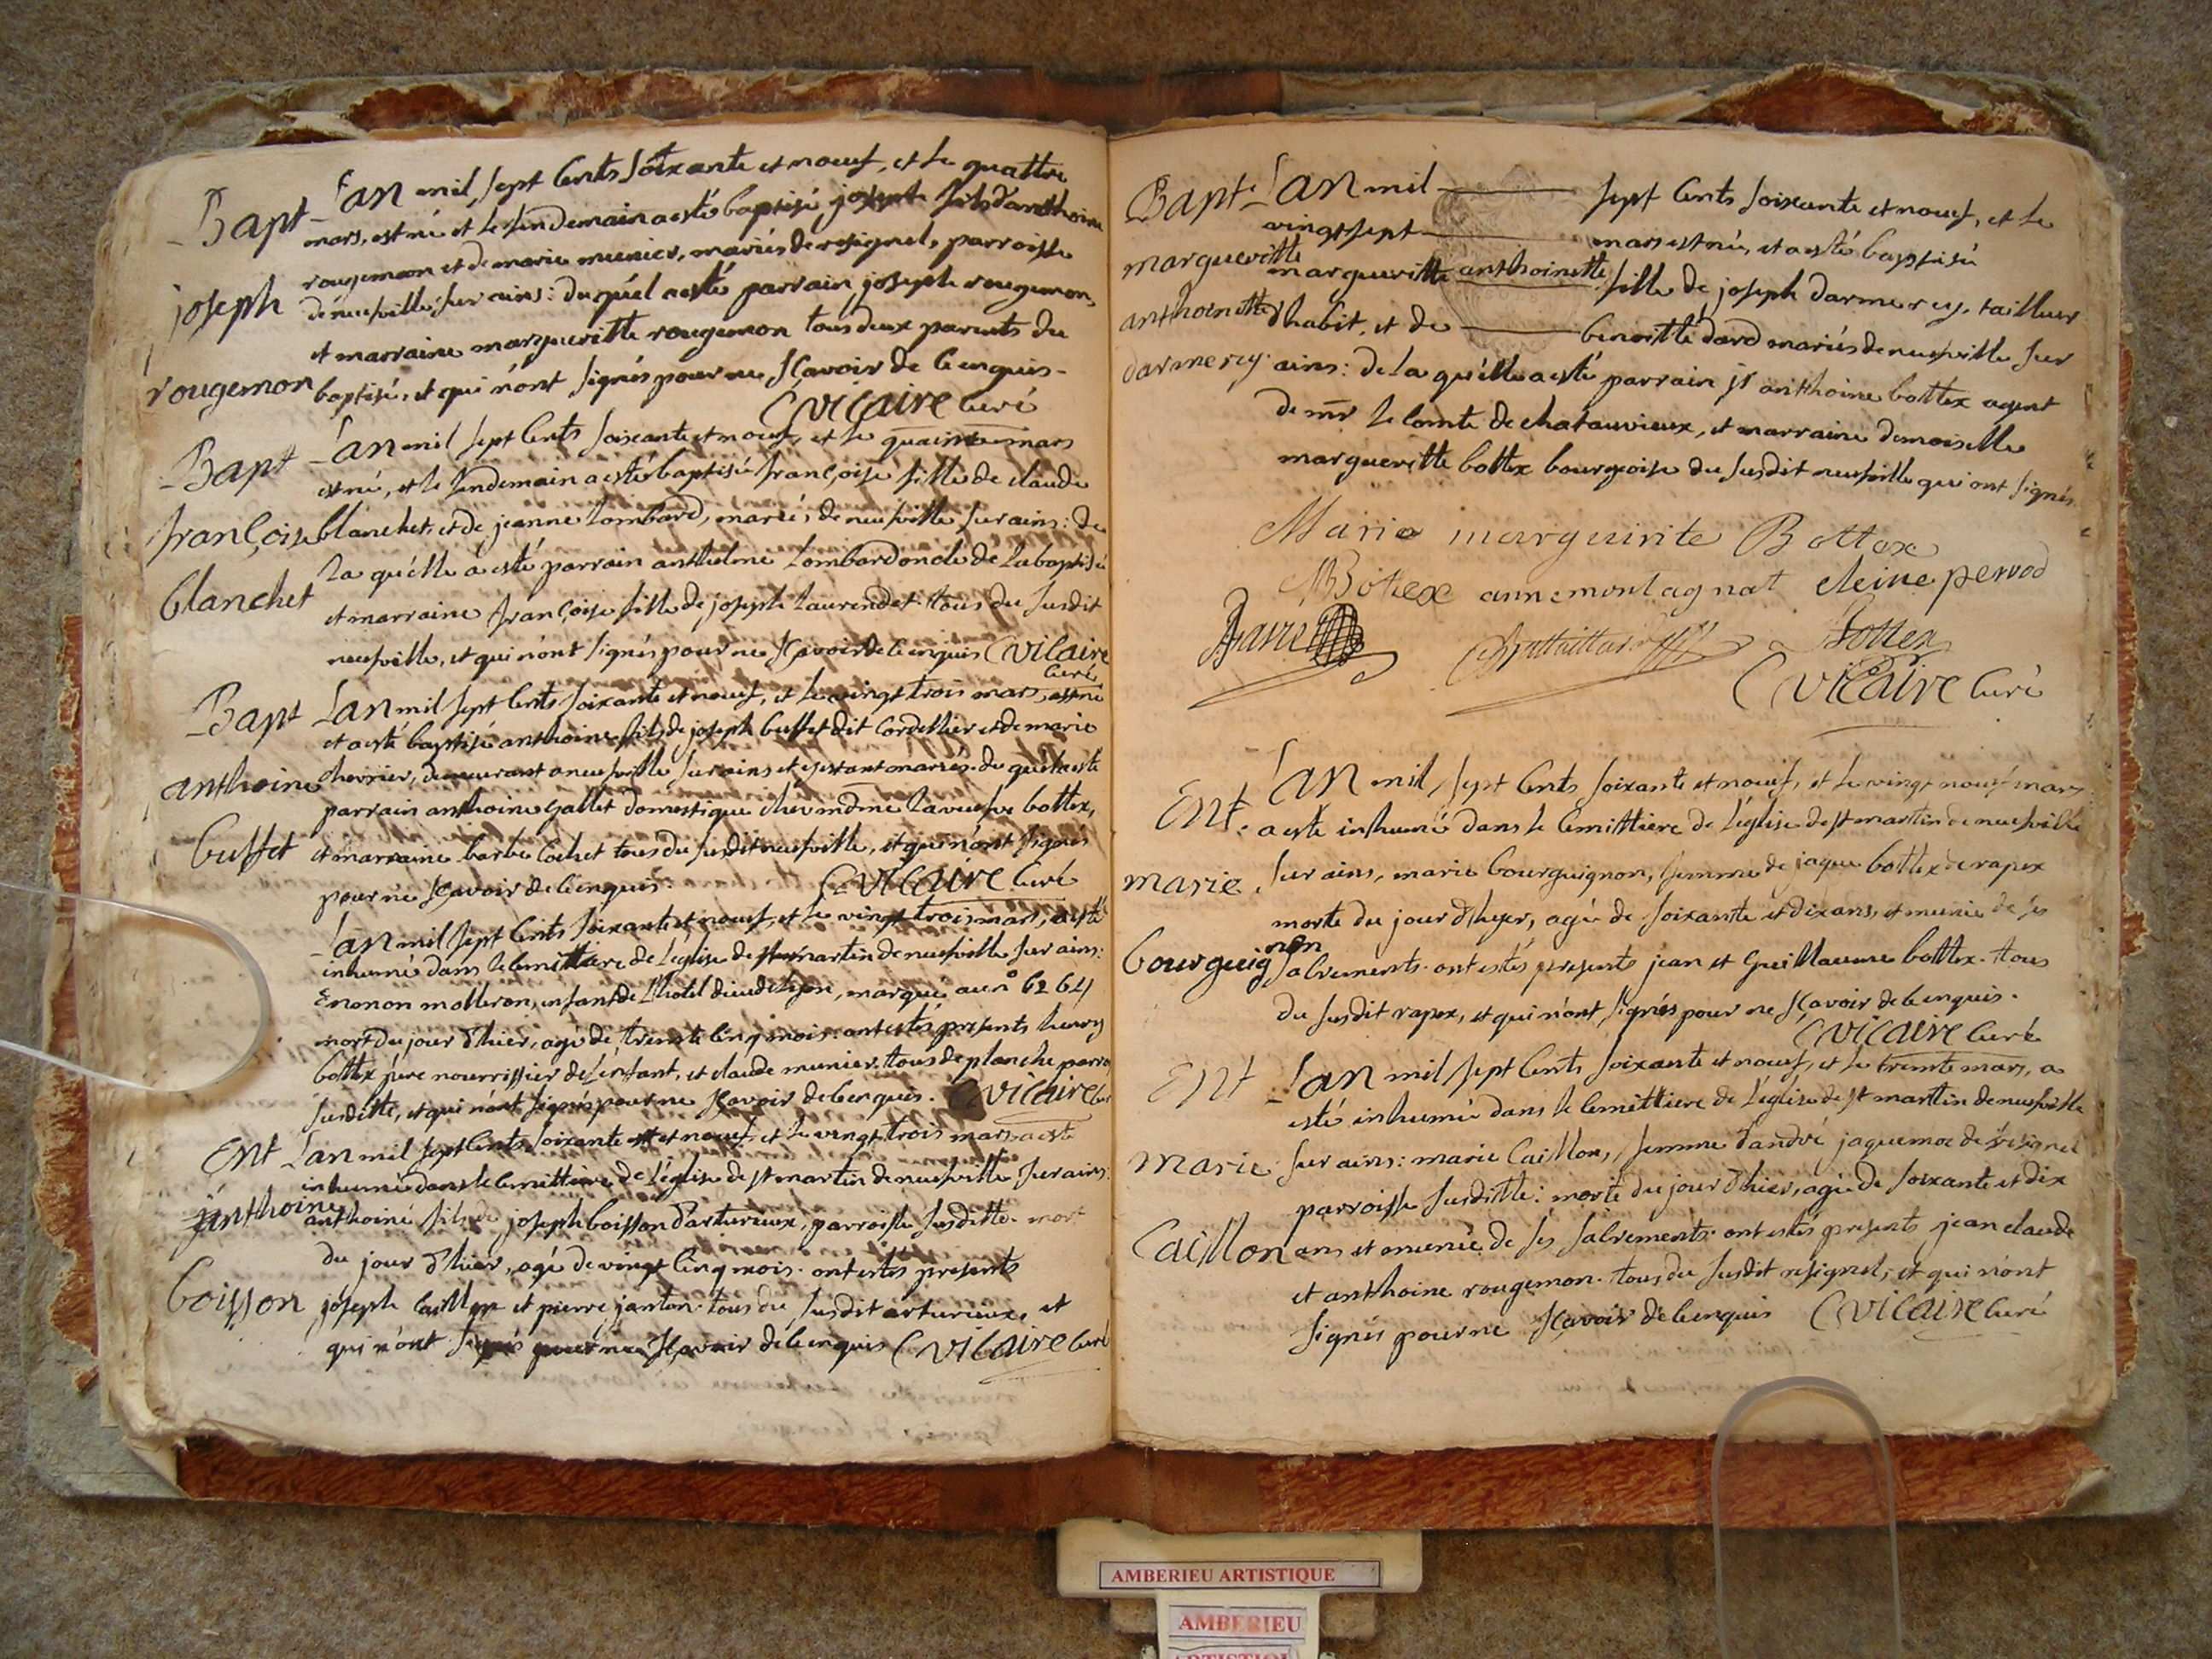 Bapt L'an mil sept cents soixante et noeuf, et le quattre
mars, est né et le lendemain a esté baptisé joseph fils d'anthoine
rougemon et de marie munier, mariés de resignel, parroisse
joseph de neufville sur ains: du quel a esté parrain joseph rougemon,
et marraine margueritte rougemon tous deux parents du
rougemon baptisé, et qui n'ont signés pour ne sçavoir de ce enquis-
C vicaire curé
Bapt L'an mil sept cents soixante et noeuf, et le quainse mars
est né, et le lendemain a esté baptisée françoise fille de claude
françoise blanchet, et de jeanne lombard, mariés, de neufville sur ains: de
la quélle a esté parrain anthelme lombard oncle de la baptisée
blanchet et marraine françoise fille de joseph laurendet. tous du susdit
neufville, et qui n'ont signés pour ne sçavoir de ce enquis C vicaire
curé
Bapt L'an mil sept cents soixante et noeuf, et le vingt trois mars, est né
et a esté baptisé anthoine fils de joseph buffet dit cordellier et de marie
anthoine chevrier, demeurant a neufville sur ains et estant mariés. du quel a esté
parrain anthoine gallet domestique chez mdme la veufve bottex,
buffet et marraine barbe cochet tous du susdit neufville, et qui n'ont signés
pour ne sçavoir de ce enquis. C vicaire curé
L'an mil sept cents soixante et noeuf, et le vingt trois mars, a esté
inhumé dans le cemittiere de l'église de st martin de neufville sur ains:
molleron, enfant de l'hotel dieu de lyon, marqué au n° 6264
mort du jour d'hier, agé de trente cinq mois. ont estés presents henry
bottex père nourrissier de l'enfant, et claude munier. tous de planche parro
susditte, et qui n'ont signés pour ne sçavoir de ce enquis. C vicaire
Ent L'an mil sept cents soixante et noeuf, et le vingt trois mars a esté
inhumé dans le cemittiere de l'église de st martin de neufville sur ains:
anthoine anthoine fils de joseph boisson d'arturieux, parroisse susditte. mort
du jour d'hier, agé de vingt cinq mois. ont estés presents
boisson joseph caillon et pierre janton. tous du susdit arturieux, et
qui n'ont signés pour ne sçavoir de ce enquis C vicaire curé
Bapt. L'an mil sept cents soixante et noeuf, et le
vingt sept mars est née, et a esté baptisée
margueritte margueritte anthoinette fille de joseph darmerey, tailleur
anthoinette d'habit, et de benoitte dard mariés de neufville sur
darmerey. ains: de la quélle a esté parrain sr anthoine bottex agent
de mr le comte de chatauvieux, et marraine demoiselle
margueritte bottex bourgeoise du susdit neufville qui ont signés
Marie marguirite Bottex
MBottex anne montagnat cleine perrod
Favre Bottex
C vicaire curé
Ent. L'an mil, sept cents soixante et noeuf, et le vingt noeuf mars
a esté inhumée dans le cemittiere de l'église de st martin de neufville
marie sur ains, marie bourguignon, femme de jaque bottex de rapex
morte du jour d'hyer, agée de soixante et dix ans, et munie de ses
bourguignon sacrements. ont estés presents jean et guillaume bottex. tous
du susdit rapex, et qui n'ont signés pour ne sçavoir de ce enquis.
C vicaire curé
Ent L'an mil sept cents soixante et noeuf, et le trente mars, a
estés inhumée dans le cemittiere de l'église de st martin de neufville
marie sur ains: marie caillon, femme d'andré jaquemoe de resignel
parroisse susditte: morte du jour d'hier, agée de soixante et dix
Caillon ans et munie de ses sacrements. ont estés presents jean claude
et anthoine rougemon. tous du susdit resignel, et qui n'ont
signés pour ne sçavoir de ce enquis C vicaire curé
AMBERIEU ARTISTIQUE
AMBERIEU
ARTISTIQUE